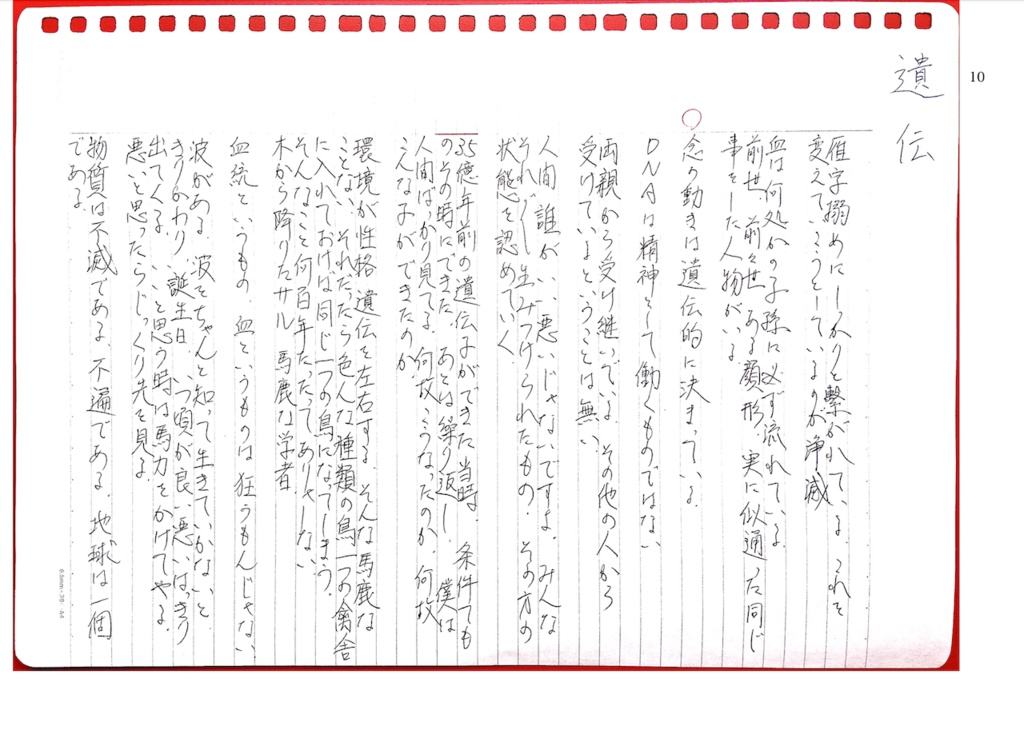 10
遺伝
雁字搦めにしっかりと繋がれている。これを
変えていこうとしているのが浄滅
血は何処かの子孫に必ず流れている。
前世、前々世、ある顔形、実に似通った同じ
事をした人物がいる。
念の動きは遺伝的に決まっている。
DNAは精神として働くものではない
両親から受け継いでいる。その他の人から
受けているということは無い。
人間、誰がいい、悪いじゃないですよ。みんな
それぞれ生みつけられたもの。その方の
状態を認めていく。
35億年前の遺伝子ができた当時、条件でも
のその時にできた。あとは繰り返し。僕は
人間ばっかり見てる。何故こうなったのか、何故
こんな子ができたのか
環境が性格、遺伝を左右する。そんな馬鹿な
ことない。それだったら色んな種類の鳥、一つの禽舎
に入れておけば同じ一つの鳥になってしまう。
そんなこと何百年たったってありゃしない
木から降りたサル 馬鹿な学者
血統というもの、血というものは狂うもんじゃない
波がある。波をちゃんと知って生きていかないと。
きりかわり、誕生日、いつ頃が良い悪いはっきり
出てくる。いいと思う時は馬力をかけてやる。
悪いと思ったらじっくり先を見る。
物質は不滅である。不遍である。地球は一個
である。
6.5mm・39・44